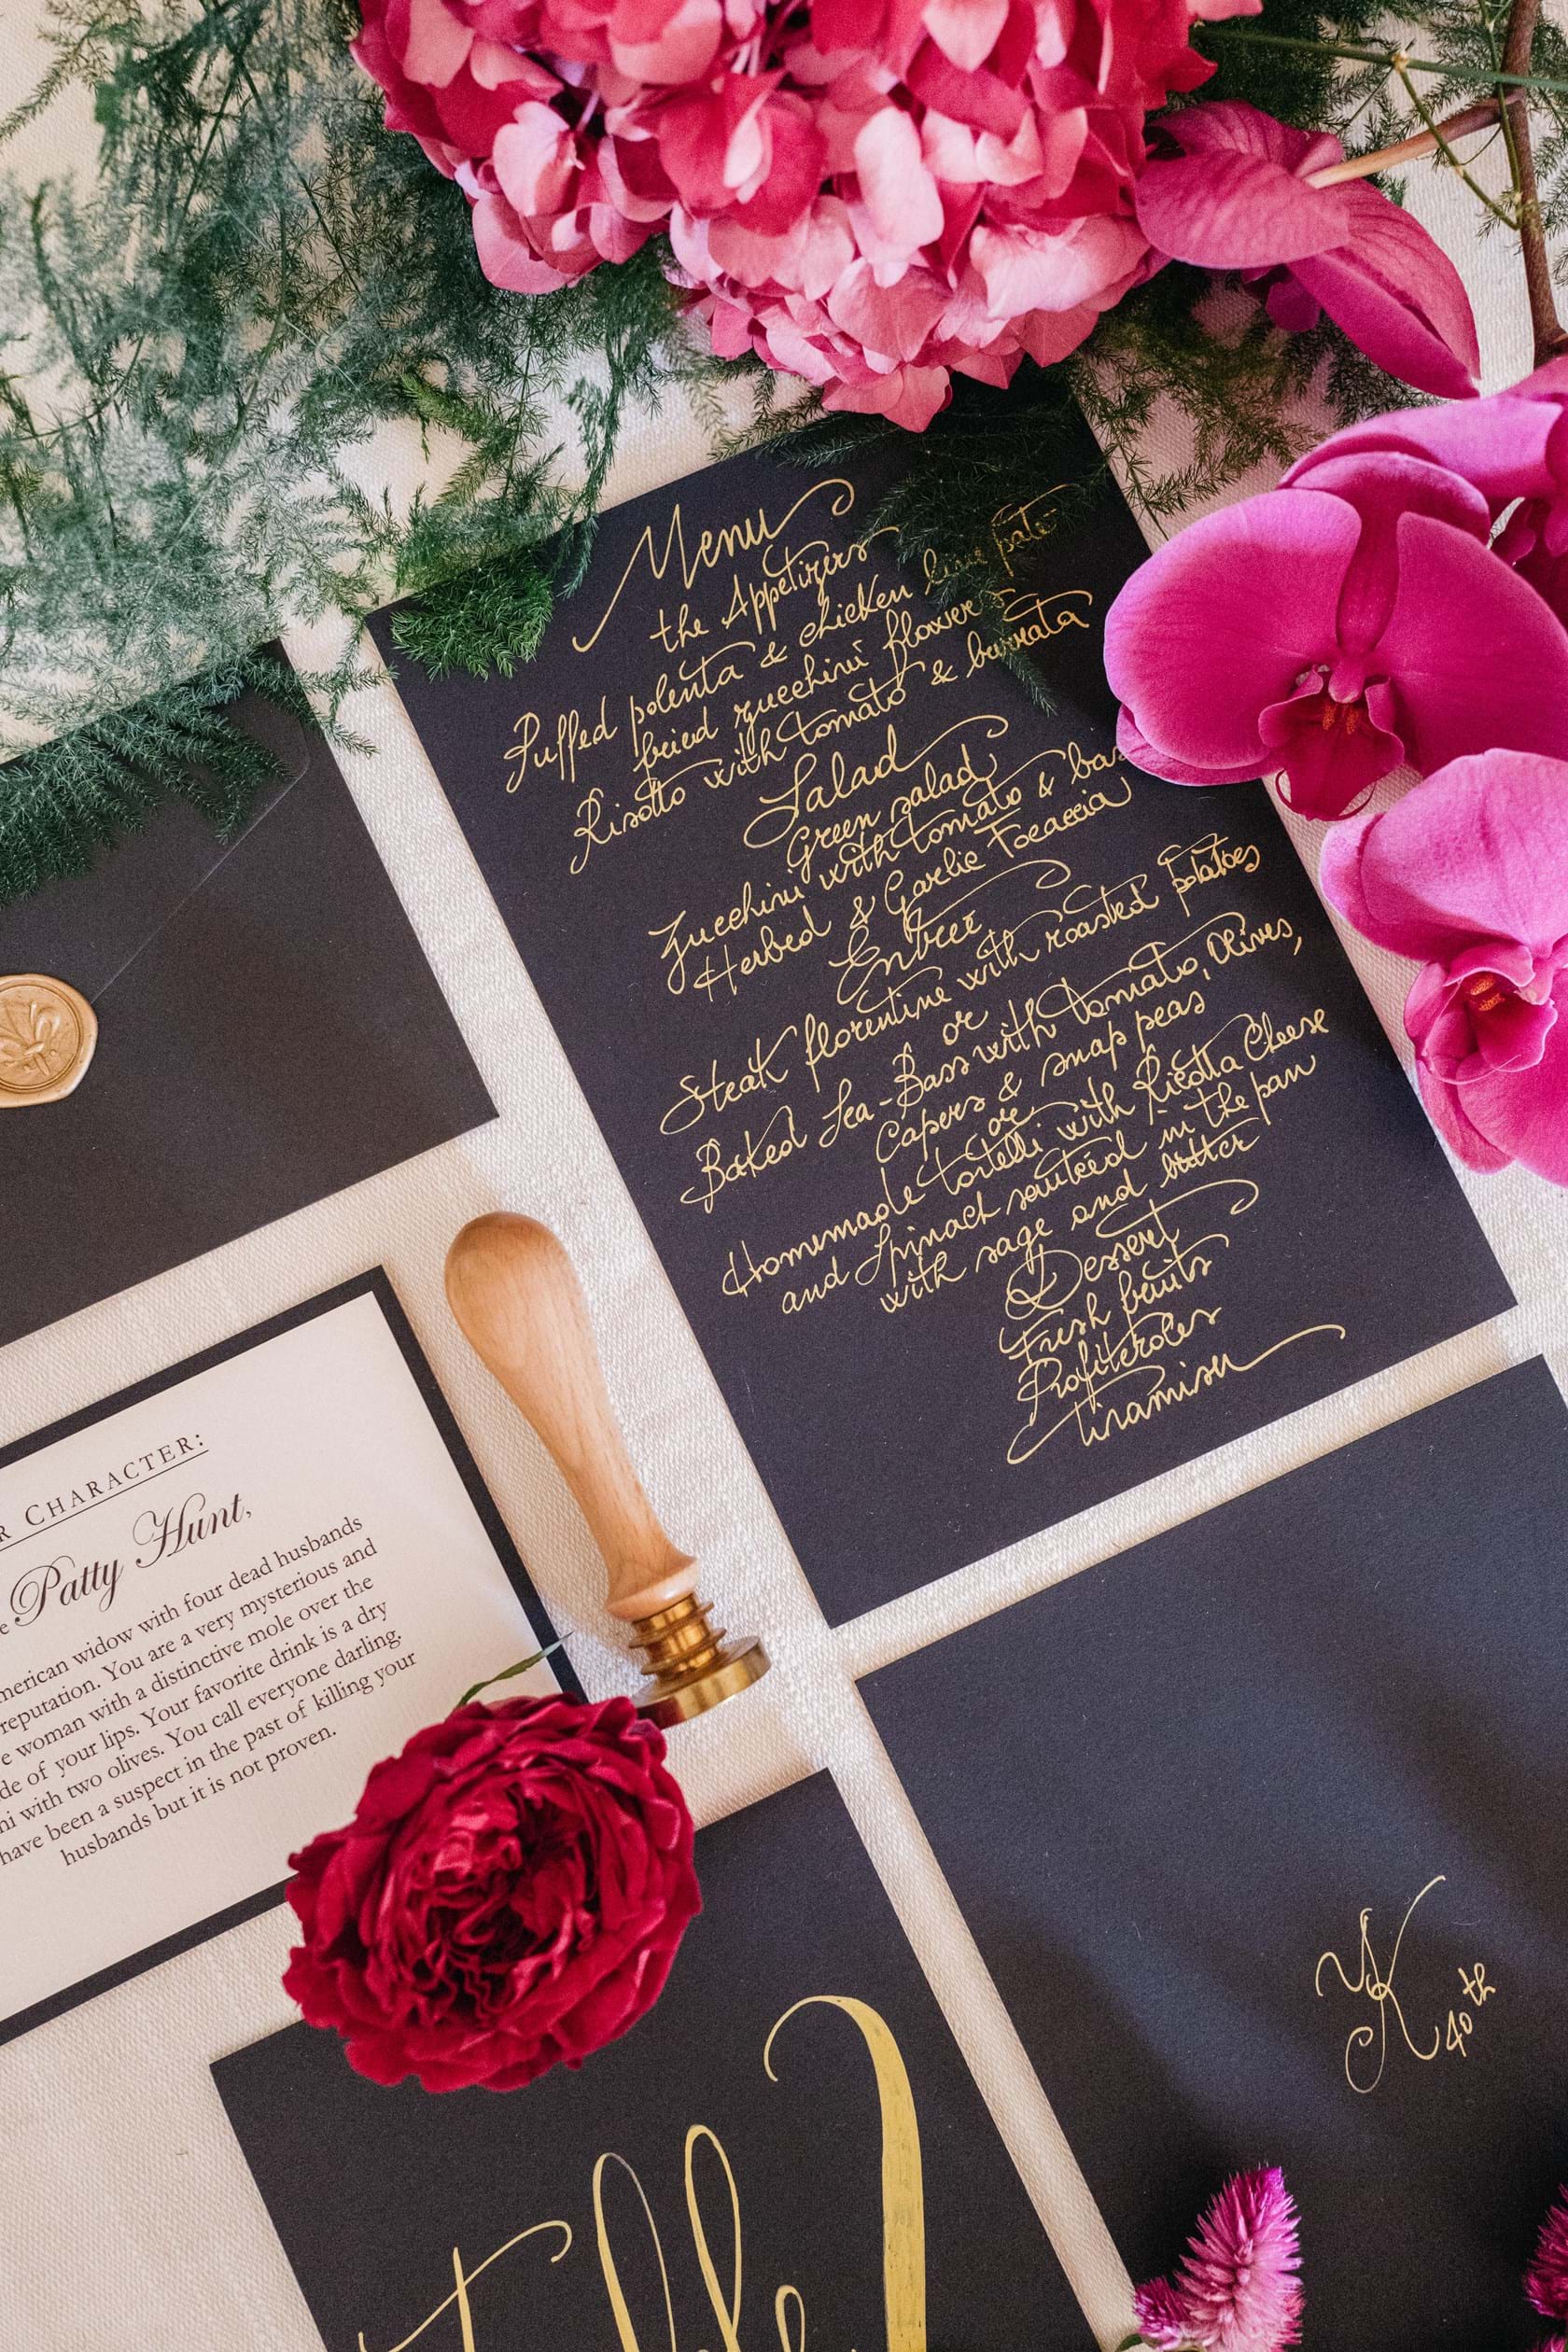 Menu
the Appetizers
Puffed polenta & chicken liver paté
fried zucchini flowers
Risotto with tomato & burrata
Salad
Green salad
Zucchini with tomato & bas
Herbed & Garlic Focaccia
Entreé
Steak florentine with roasted potatoes
or
Baked Sea-Bass with tomato, Olives,
Capers & snap peas
or
Homemade tortelli with Ricotta Cheese
and Spinach sautéed in the pan
with sage and butter
Dessert
Fresh fruits
Profiteroles
tiramisu
R CHARACTER:
e Patty Hunt,
merican widow with four dead husbands
reputation. You are a very mysterious and
e woman with a distinctive mole over the
de of your lips. Your favorite drink is a dry
ni with two olives. You call everyone darling.
have been a suspect in the past of killing your
husbands but it is not proven.
K
40th